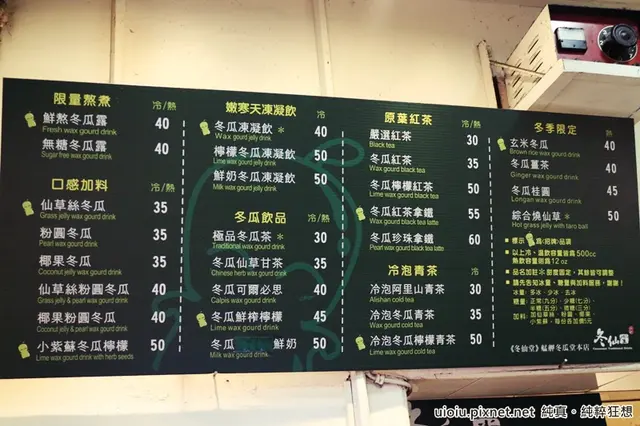 限量熬煮 冷/熱
鮮熬冬瓜露 40
Fresh wax gourd drink
無糖冬瓜露 40
Sugar free wax gourd drink
口感加料 冷/熱
仙草絲冬瓜 35
Grass jelly wax gourd drink
粉圓冬瓜 35
Pearl wax gourd drink
椰果冬瓜 35
Coconut jelly wax gourd drink
仙草絲粉圓冬瓜 40
Grass jelly & pearl wax gourd drink
椰果粉圓冬瓜 40
Coconut jelly & pearl wax gourd drink
小紫蘇冬瓜檸檬 50
Lime wax gourd drink with herb seeds
嫩寒天凍凝飲 冷
冬瓜凍凝飲＊ 40
Wax gourd jelly drink
檸檬冬瓜凍凝飲 50
Lime wax gourd jelly drink
鮮奶冬瓜凍凝飲 50
Milk wax gourd jelly drink
冬瓜飲品 冷/熱
極品冬瓜茶＊ 30
Traditional wax gourd drink
冬瓜仙草甘茶 35
Chinese herb wax gourd drink
冬瓜可爾必思 40
Calpis wax gourd drink
冬瓜鮮榨檸檬 45
Lime wax gourd drink
冬瓜 鮮奶 50
Milk wax gourd drink
原葉紅茶 冷/熱
嚴選紅茶 30
Black tea
冬瓜紅茶 35
Wax gourd black tea
冬瓜檸檬紅茶 50
Lime wax gourd black tea
冬瓜紅茶拿鐵 55
Wax gourd black tea latte
冬瓜珍珠拿鐵 60
Pearl wax gourd black tea latte
冷泡青茶 冷
冷泡阿里山青茶 30
Alishan cold tea
冷泡冬瓜青茶 35
Wax gourd cold tea
冷泡冬瓜檸檬青茶 50
Lime wax gourd cold tea
冬季限定 熱
玄米冬瓜 40
Brown rice wax gourd drink
冬瓜薑茶 40
Ginger wax gourd drink
冬瓜桂圓 45
Longan wax gourd drink
綜合燒仙草＊ 50
Hot grass jelly with taro ball
以上冷、溫飲容量皆為 500cc
熱飲容量則為 12 oz
品名加註＊甜度固定，其餘皆可調整
冰量：多冰、少冰、去冰
冬仙堂
《冬仙堂》艋舺冬瓜堂本店
uioiu.pixnet.net 純真。純粹狂想